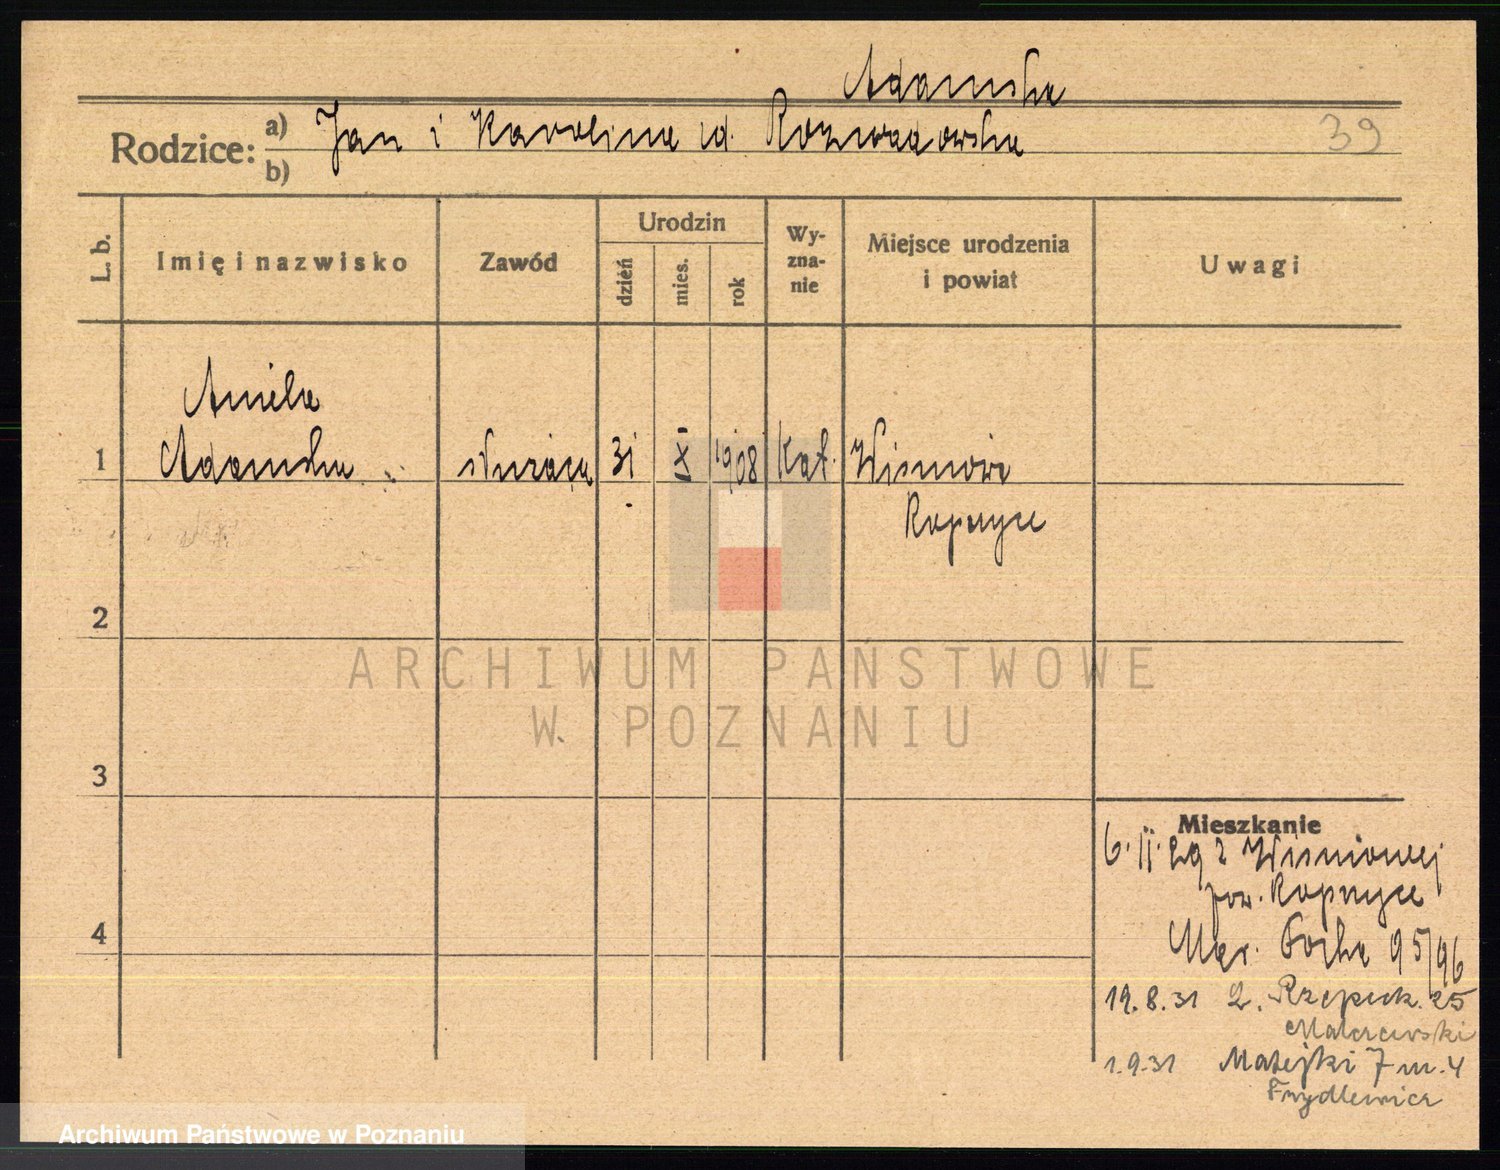 Adamska
Rodzice: a) Jan i Karolina z d. Rozwadowska 39
b)
L. b. Imię i nazwisko Zawód Urodzin dzień mies. rok Wy-zna-nie Miejsce urodzenia i powiat Uwagi
Aniela
1 Adamska służąca 31 X 1908 Kat. Wiśniowa
Ropczyce
2
3
4
ARCHIWUM PAŃSTWOWE
W POZNANIU
Mieszkanie
6. II. 29 z Wiśniowej
pow. Ropczyce
Mar. Focha 95/96
19.8.31 L. Rzepeck. 25
1.9.31 Matejki 7 m. 4
Frydlewicz
Archiwum Państwowe w Poznaniu